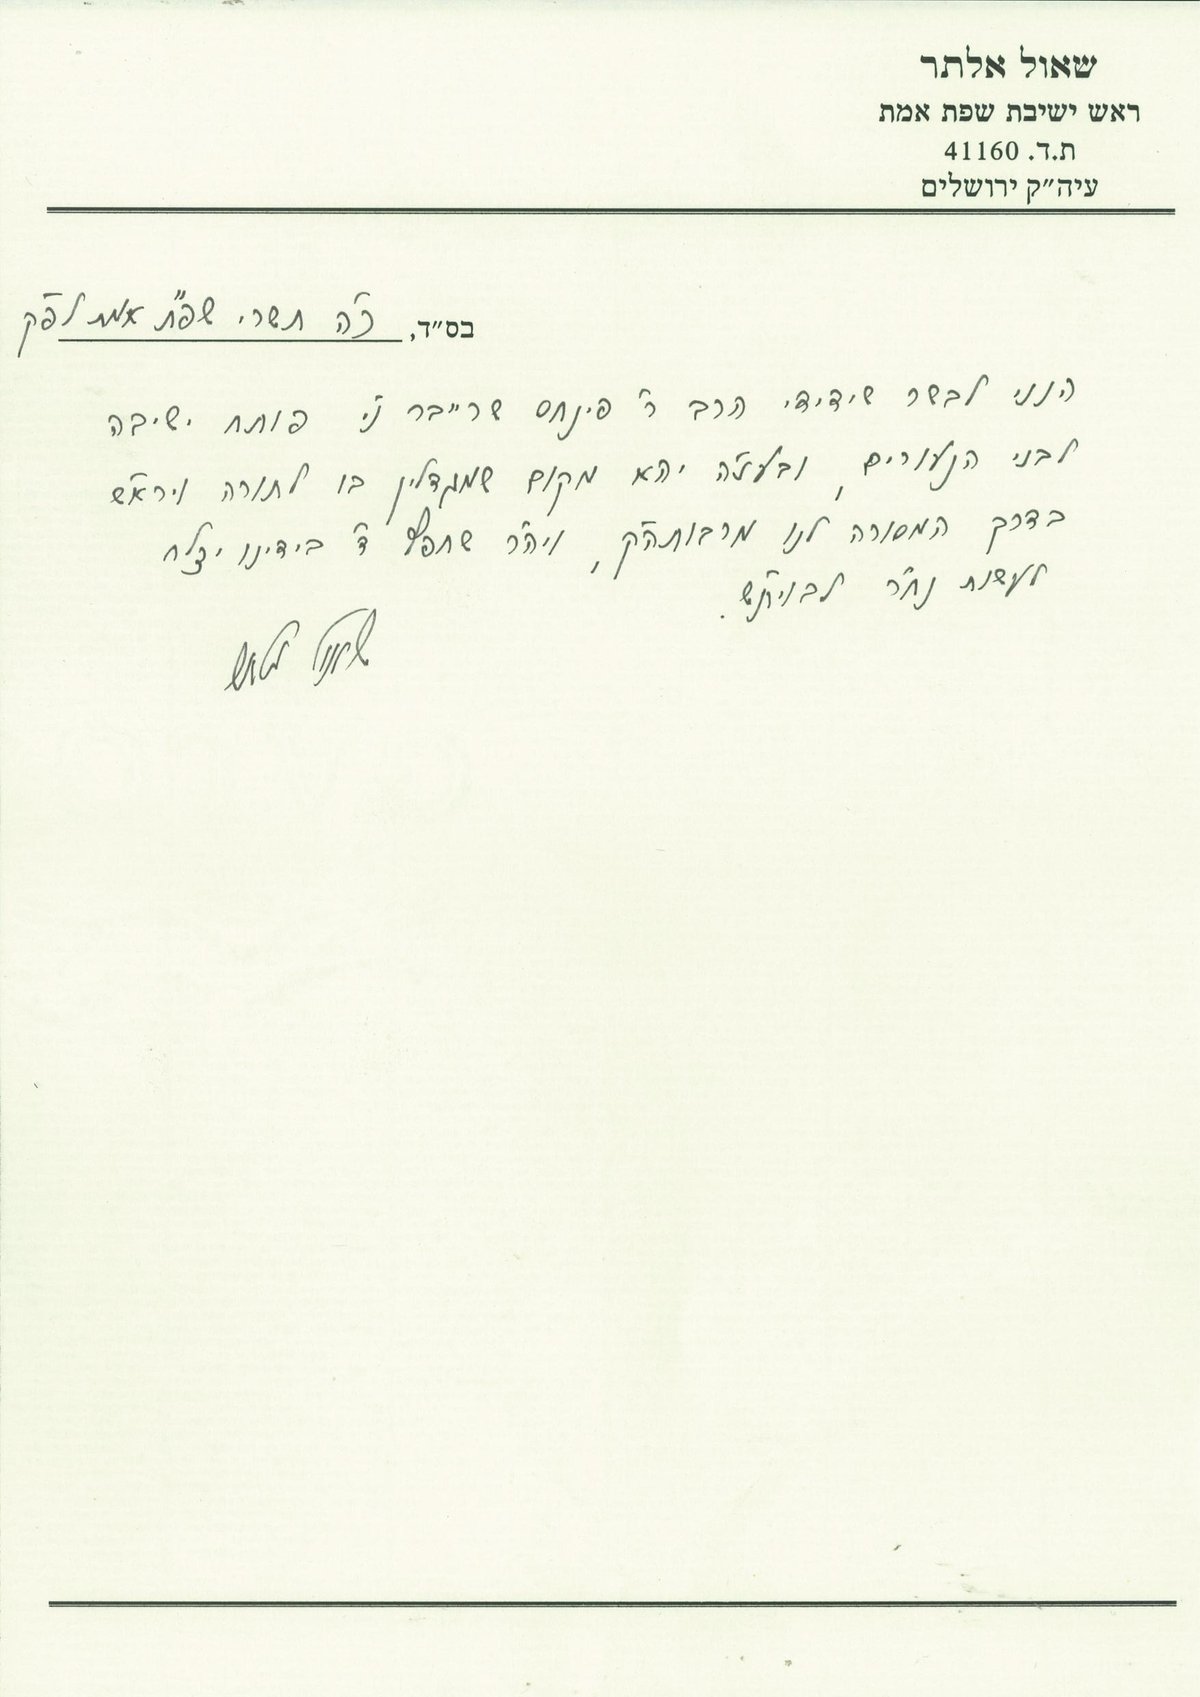 שאול אלתר
ראש ישיבת שפת אמת
ת.ד. 41160
עיה״ק ירושלים
בס״ד, כ״ה תשרי שפ״ת אמת לפ״ק
הנני לבשר שידידי הרב ר׳ פינחס שרייבר ני׳ פותח ישיבה
לבני הנעורים, ובעז״ה יהא מקום שמגדלין בו לתורה ויר״ש
בדרך המסורה לנו מרבותה״ק, ויה״ר שחפץ ד׳ בידינו יצלח
לעשות נח״ר לבוית״ש.
שאול